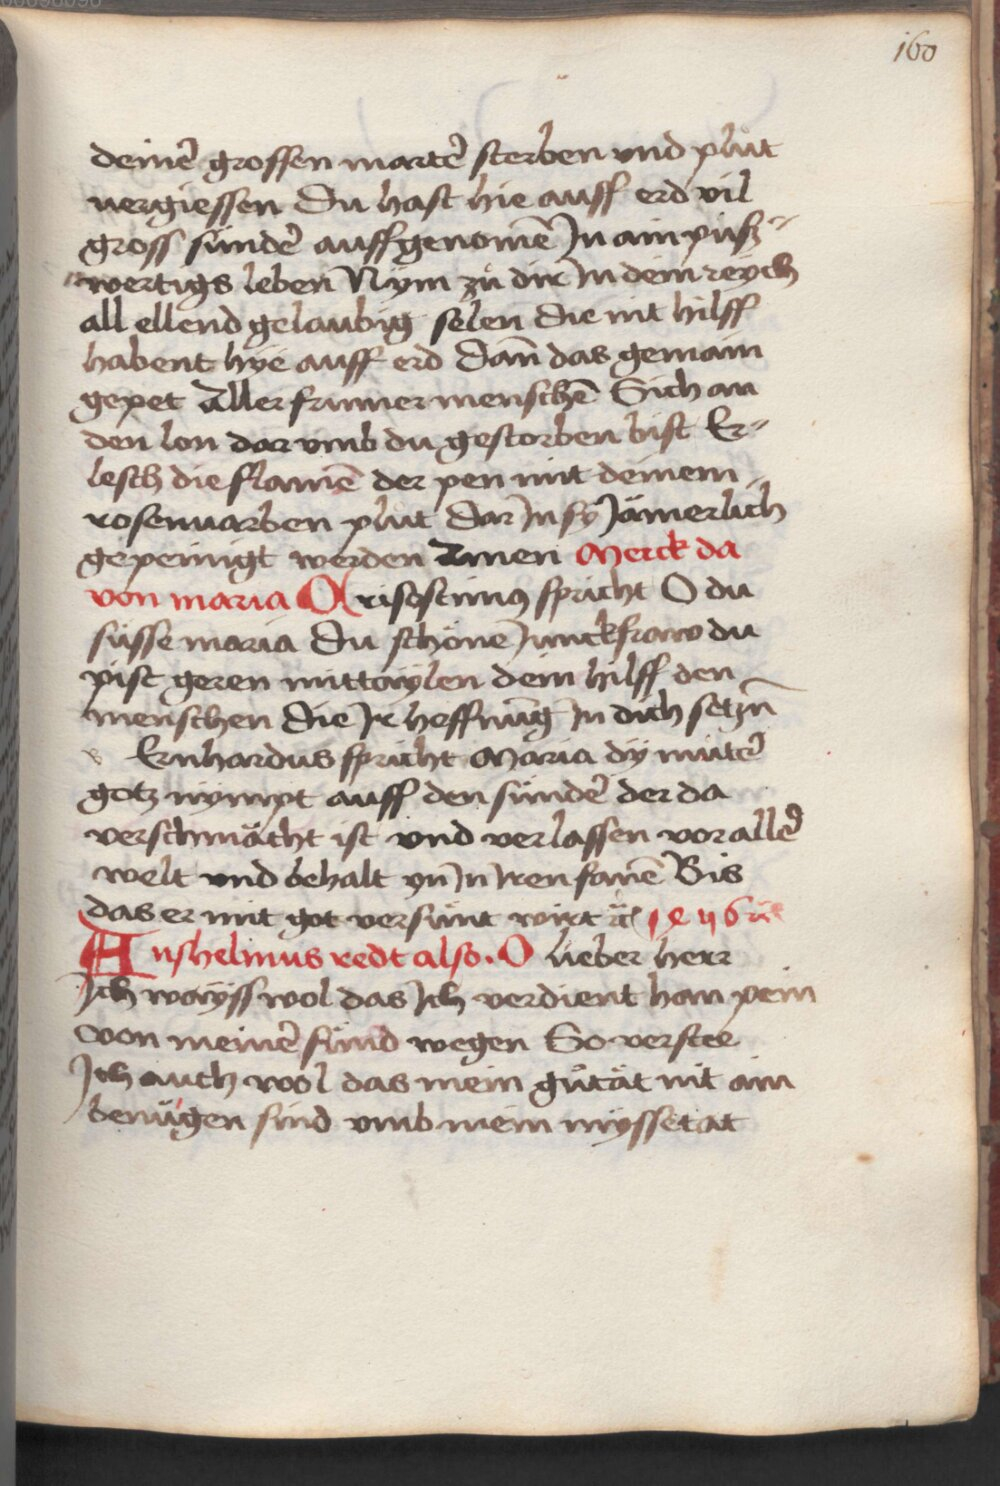 160
deinē grossen martē sterben vnd plůt
uergiessen Du hast hie auff erd vil
gross sündē auffgenomē In ain pusz
wertigs leben Nym zů dir In dein reÿch
all ellend gelaubig selen Die nit hilff
habent hye auff erd Dan̄ das gemain
gepet Aller frumer menschē Sich an
den lon dar vmb du gestorben bist Er
lesch die flamē der pen mit deinem
rosenuarben plůt Dar In sy Jämerlich
gepeinigt werden Amen Merck da
von maria Crisostimus spricht O du
süsse maria Du schöne Junckfraw du
pist geren mittaÿlen dein hilff den
menschen Die Ir hoffnūg In dich setzn̄
b Ernhardus spricht Maria dÿ mutē
gotz nympt auff den sündē der da
verschmächt ist vnd verlassen vor allē
welt vnd behalt yn̄ In Iren fauē Bis
das er mit got versünt wirt
Anshelmus redt also. O lieber herr
Ich waÿss wol das Ich verdient han pein
von meinē sünd wegen So verstee
Ich auch wol das mein gůtät nit ain
benügen sind vmb mein myssetat